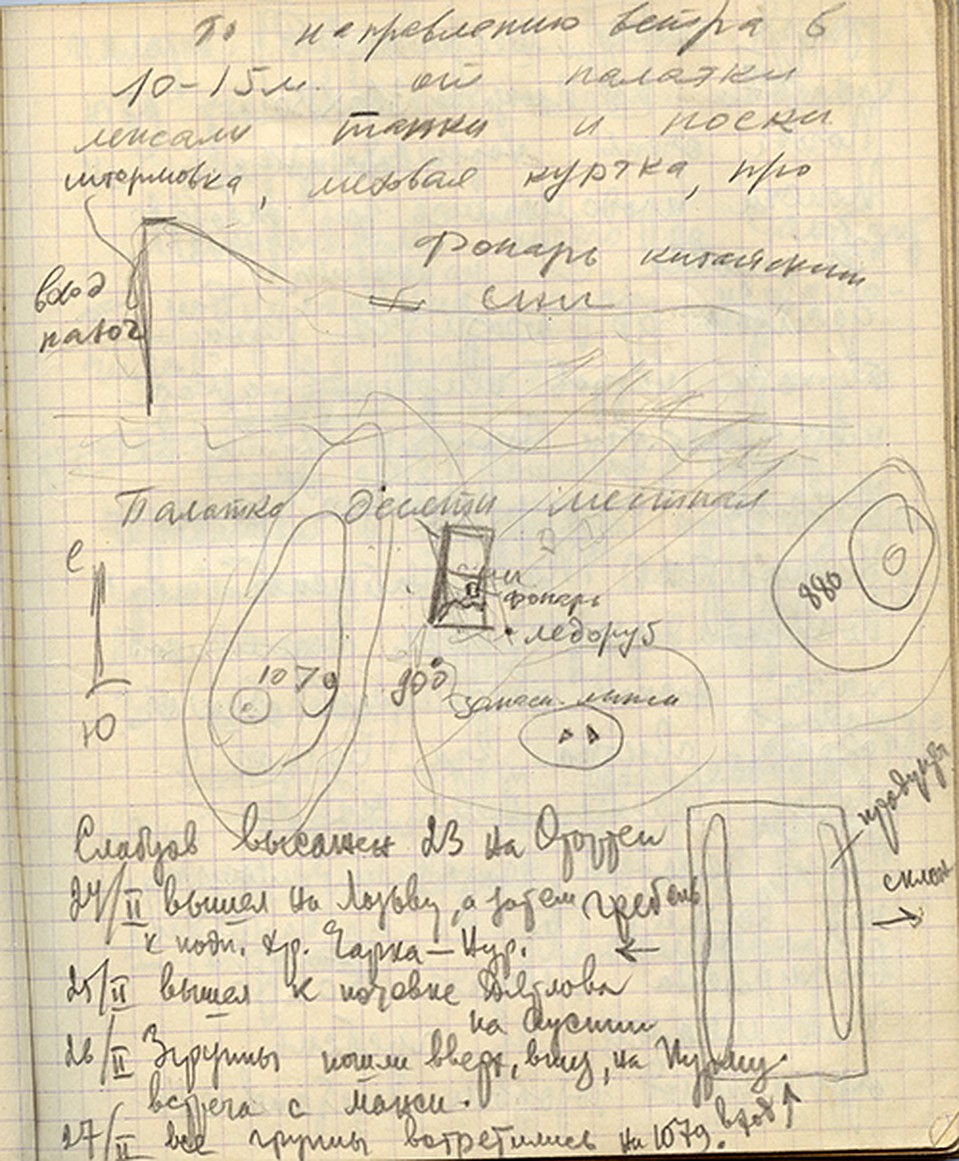 По направлению ветра в
10-15 м. от палатки
лежали тапки и носки
штормовка, меховая куртка, про
Фонарь китайский
вход
палат
Палатка десяти местная
С
фонарь
ледоруб
880
1079
900
запасн. лыжи
Ю
продукты
Слабцов высажен 23 на Отортен
склон
24/II вышел на Лозьву, а затем гребень
к подн. хр. Чарка-Нур.
25/II вышел к ночевке Дятлова
на Ауспии
26/II 3 группы пошли вверх, вниз, на Пурму.
встреча с манси.
вход
27/II все группы встретились на 1079.